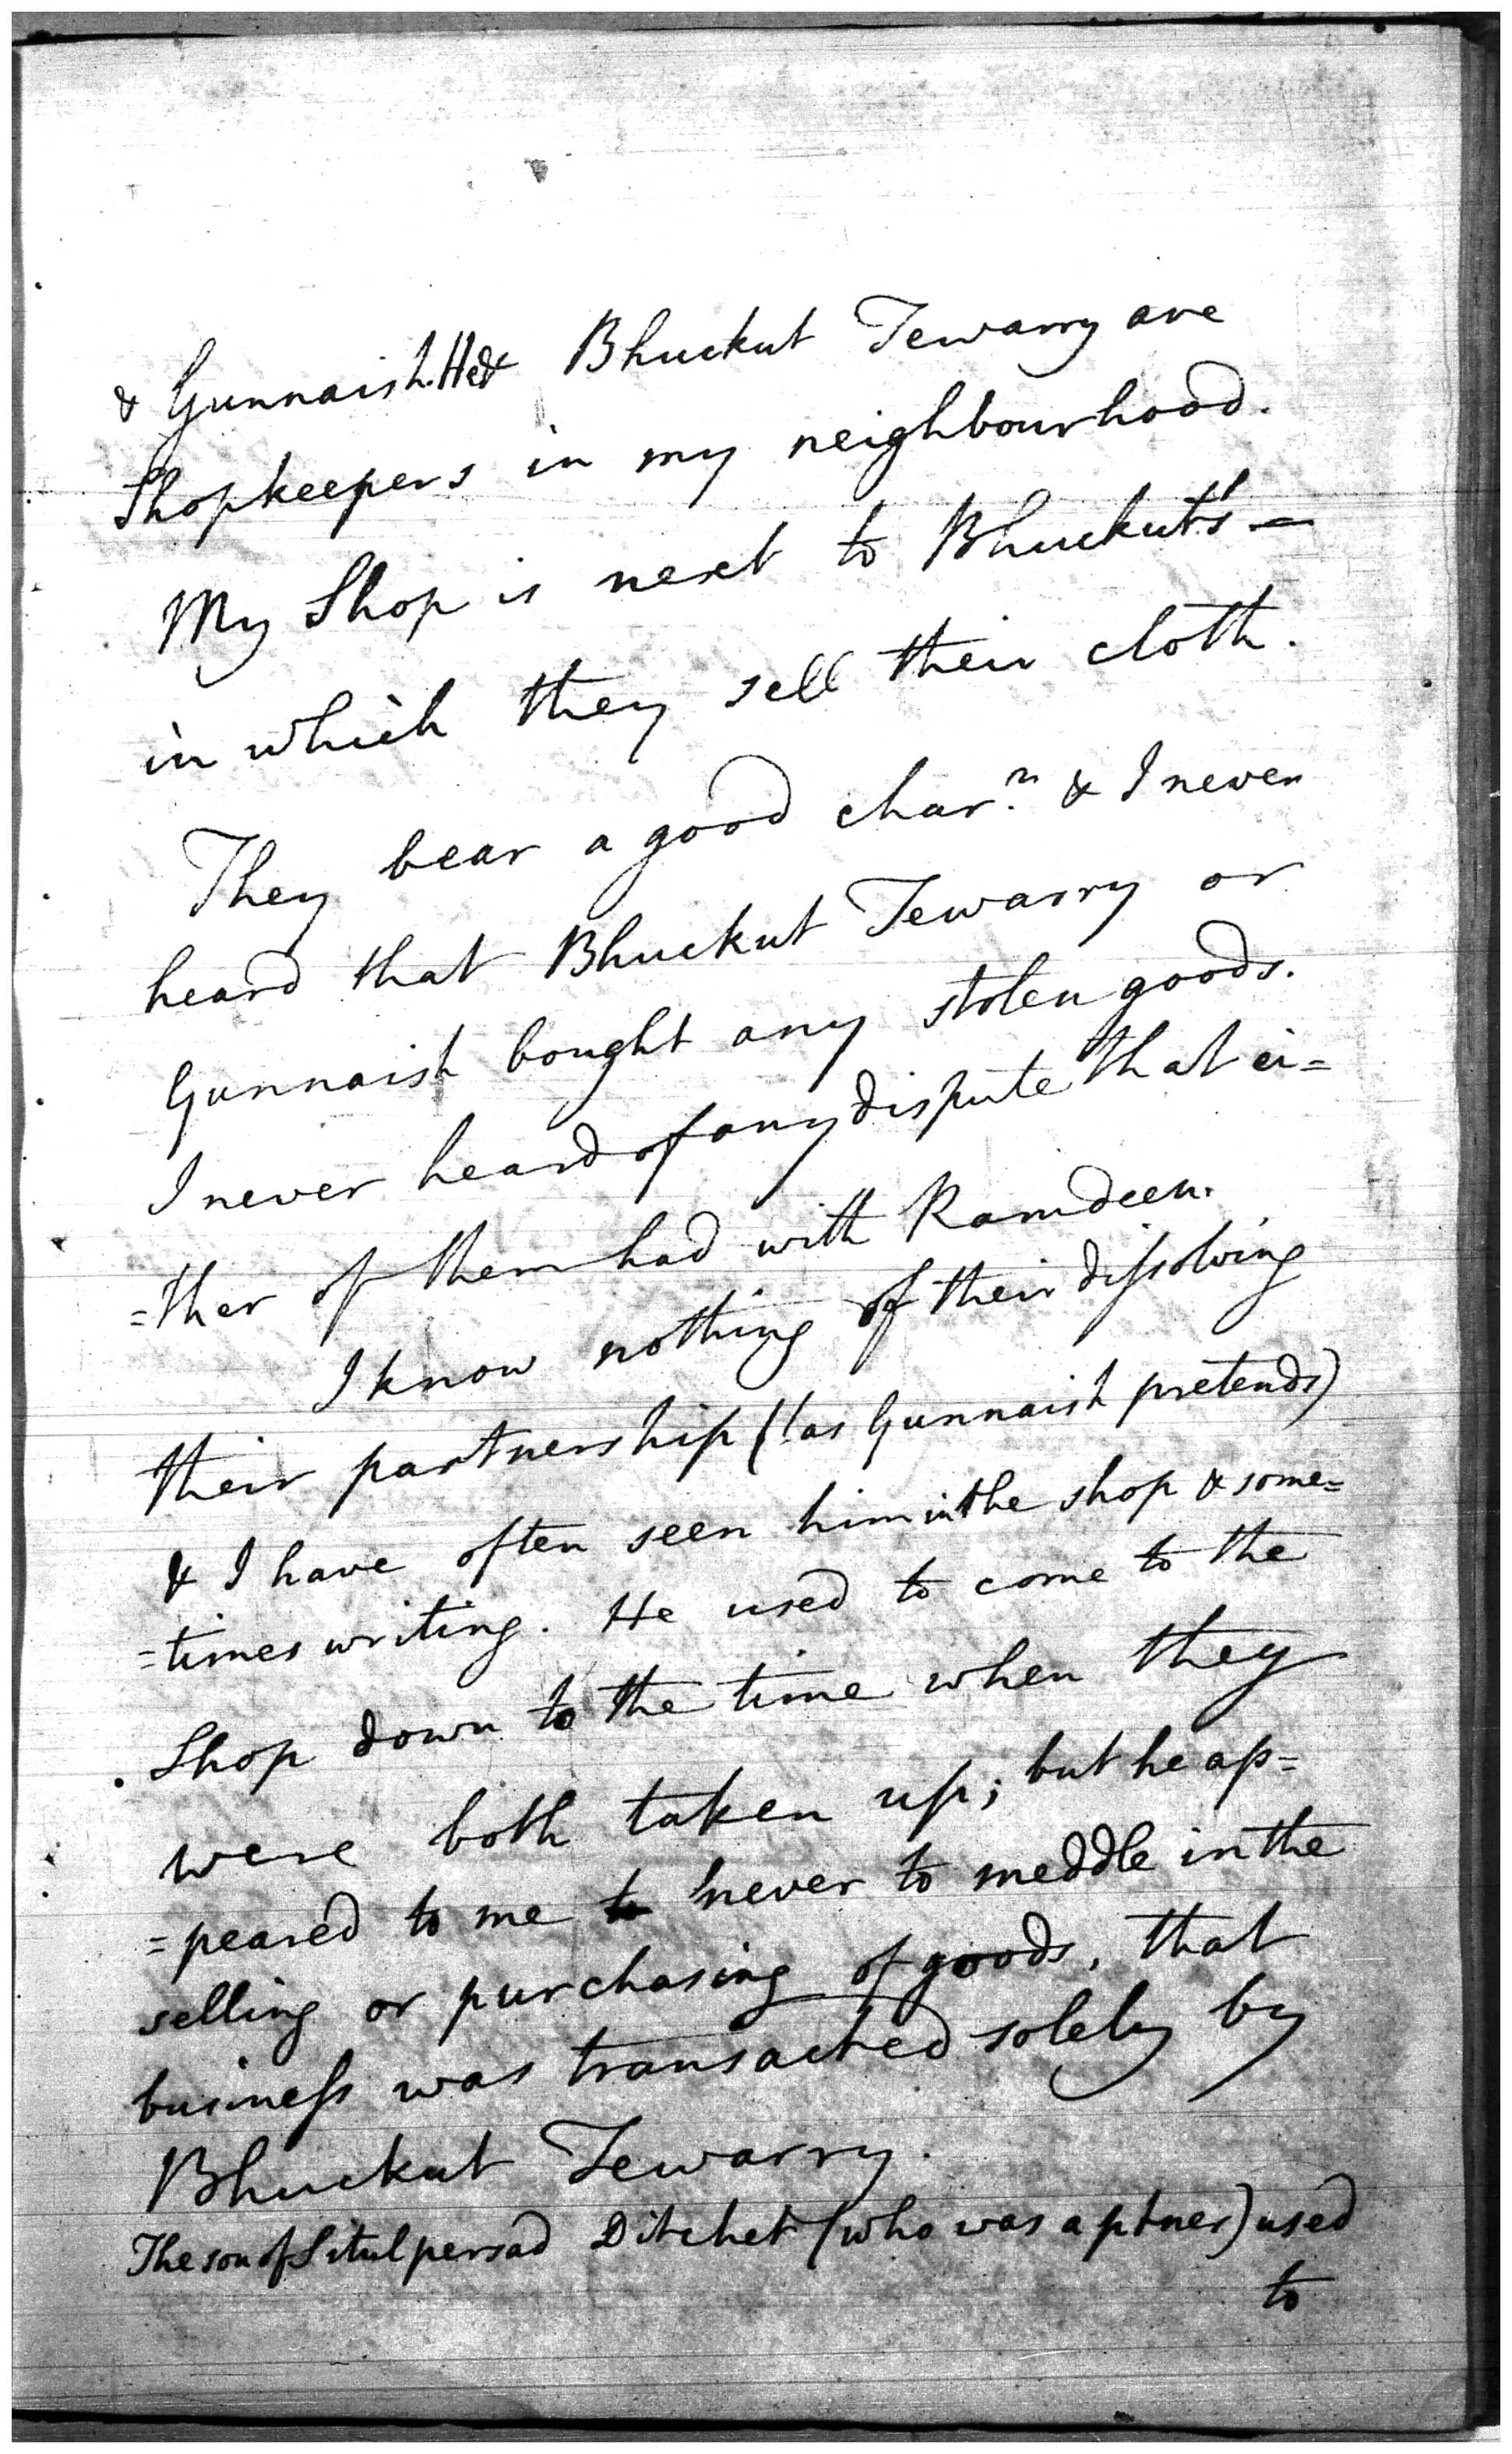 & Gunnaish. He & Bhuckut Tewarry are
Shopkeepers in my neighbourhood.
My Shop is next to Bhuckut's —
in which they sell their cloth.
They bear a good char.r & I never
heard that Bhuckut Tewarry or
Gunnaish bought any stolen goods.
I never heard of any dispute that ei=
=ther of them had with Ramdeen.
I know nothing of their dissolving
their partnership (as Gunnaish pretends)
& I have often seen him in the shop & some=
=times writing. He used to come to the
Shop down to the time when they
were both taken up; but he ap=
=peared to me to never to meddle in the
selling or purchasing of goods, that
business was transacted solely by
Bhuckut Tewarry.
The son of Situlpersad Ditchet (who was a ptner) used
to